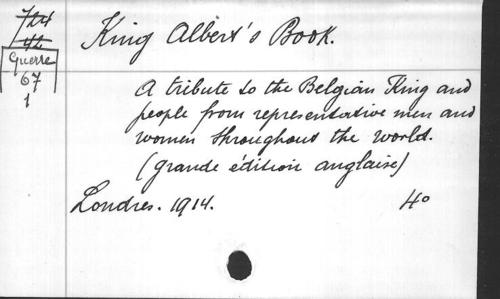 724
42
Guerre
67
1
King Albert's Book.
A tribute to the Belgian King and
people from representative men and
women throughout the world.
(grande édition anglaise)
Londres. 1914. 4o